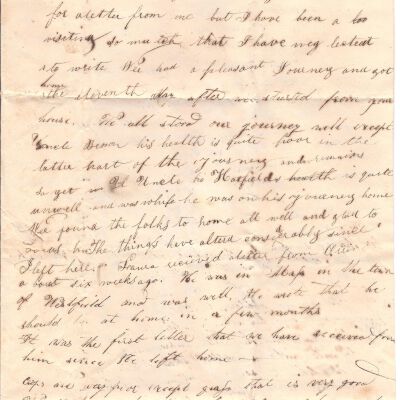 for a letter from me but I have been a
visiting so much that I have neg lected
to write We had a pleasant Journey and got
home
the eleventh day after we started from your
house. We all stood our journey well except
Uncle his health is quite poor in the
latter part of the journey and remains
so yet Uncle Hatfields health is quite
unwell and was while he was on his journey home
We found the folks to home all well and glad to
us. The things have altered considerably since
I left here. received a letter from
a bout six weeks ago. He was in Mass in the town
of and was well He wrote that he
should be at home in a few months
It was the first letter that we have received from
him since He left home
are very poor except grass that is very good